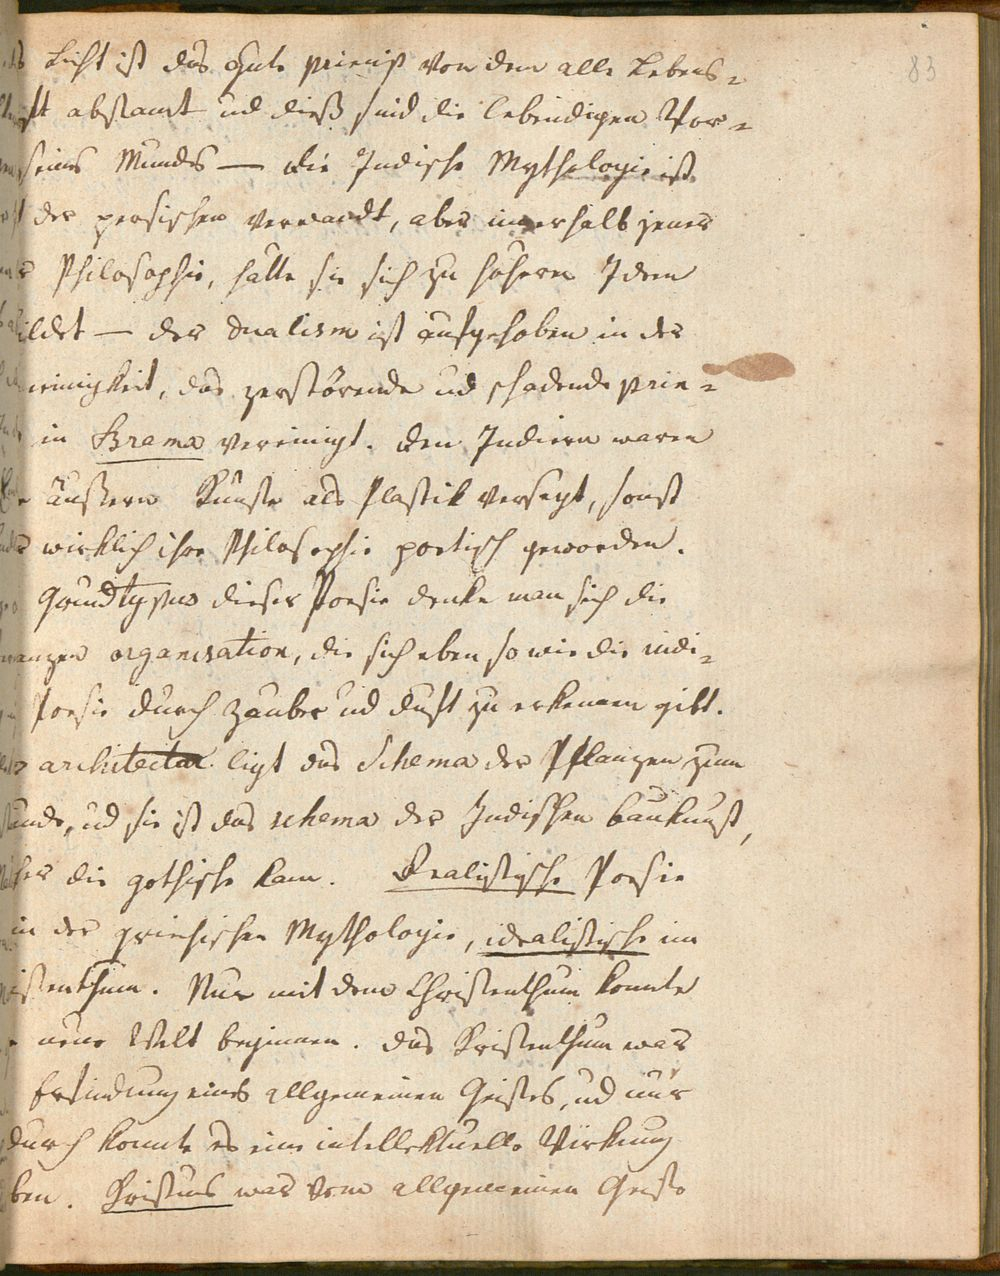 83
Licht ist das Gute princip von dem alle Lebens-
abstamt ud dieß sind die lebendigen Wor-
seines Mundes — die Indische Mythologie ist
der persischen verwandt, aber innerhalb jener
Philosophie, hatte sie sich zu höhern Ideen
ildet — der Dualism ist aufgehoben in der
einigkeit, das zerstörende ud schadende prin-
in Brama vereinigt. Den Indiern waren
äußern Künste als Plastik versagt, sonst
wirklich ihre Philosophie poetisch geworden.
Grundtypus dieser Poesie denke man sich die
anzen organisation, die sich eben so wie die indi-
Poesie durch Zauber ud Duft zu erkennen gibt.
architectur ligt das Schema der Pflanzen zum
unde, ud sie ist das schema der Indischen Baukunst,
her die gothische kam. Realistische Poesie
in der griechischen Mythologie, idealistische im
istenthum. Nur mit dem Christenthum konnte
neue Welt beginnen. Das Kristenthum war
Erfindung eines allgemeinen Geistes, ud nur
durch konnte es eine intellektuelle Wirkung
ben. Kristus war vom allgemeinen Geiste